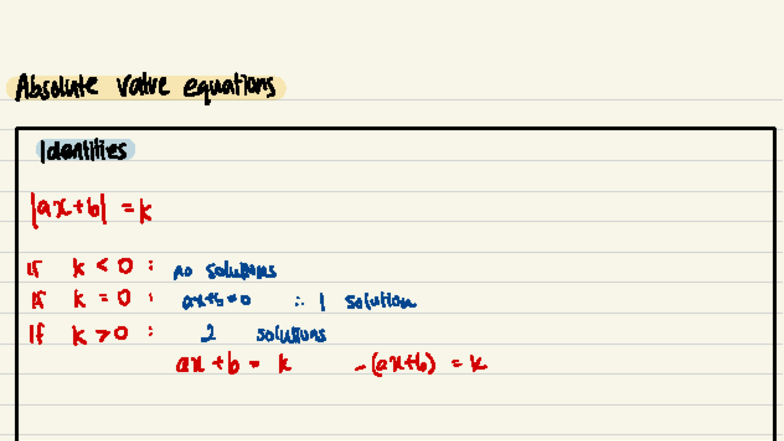 Absolute value equations
Identities
|ax+b| = k
If k < 0 : no solutions
If k = 0 : ax+b=0 ∴ 1 solution
If k > 0 : 2 solutions
ax + b = k -(ax+b) = k